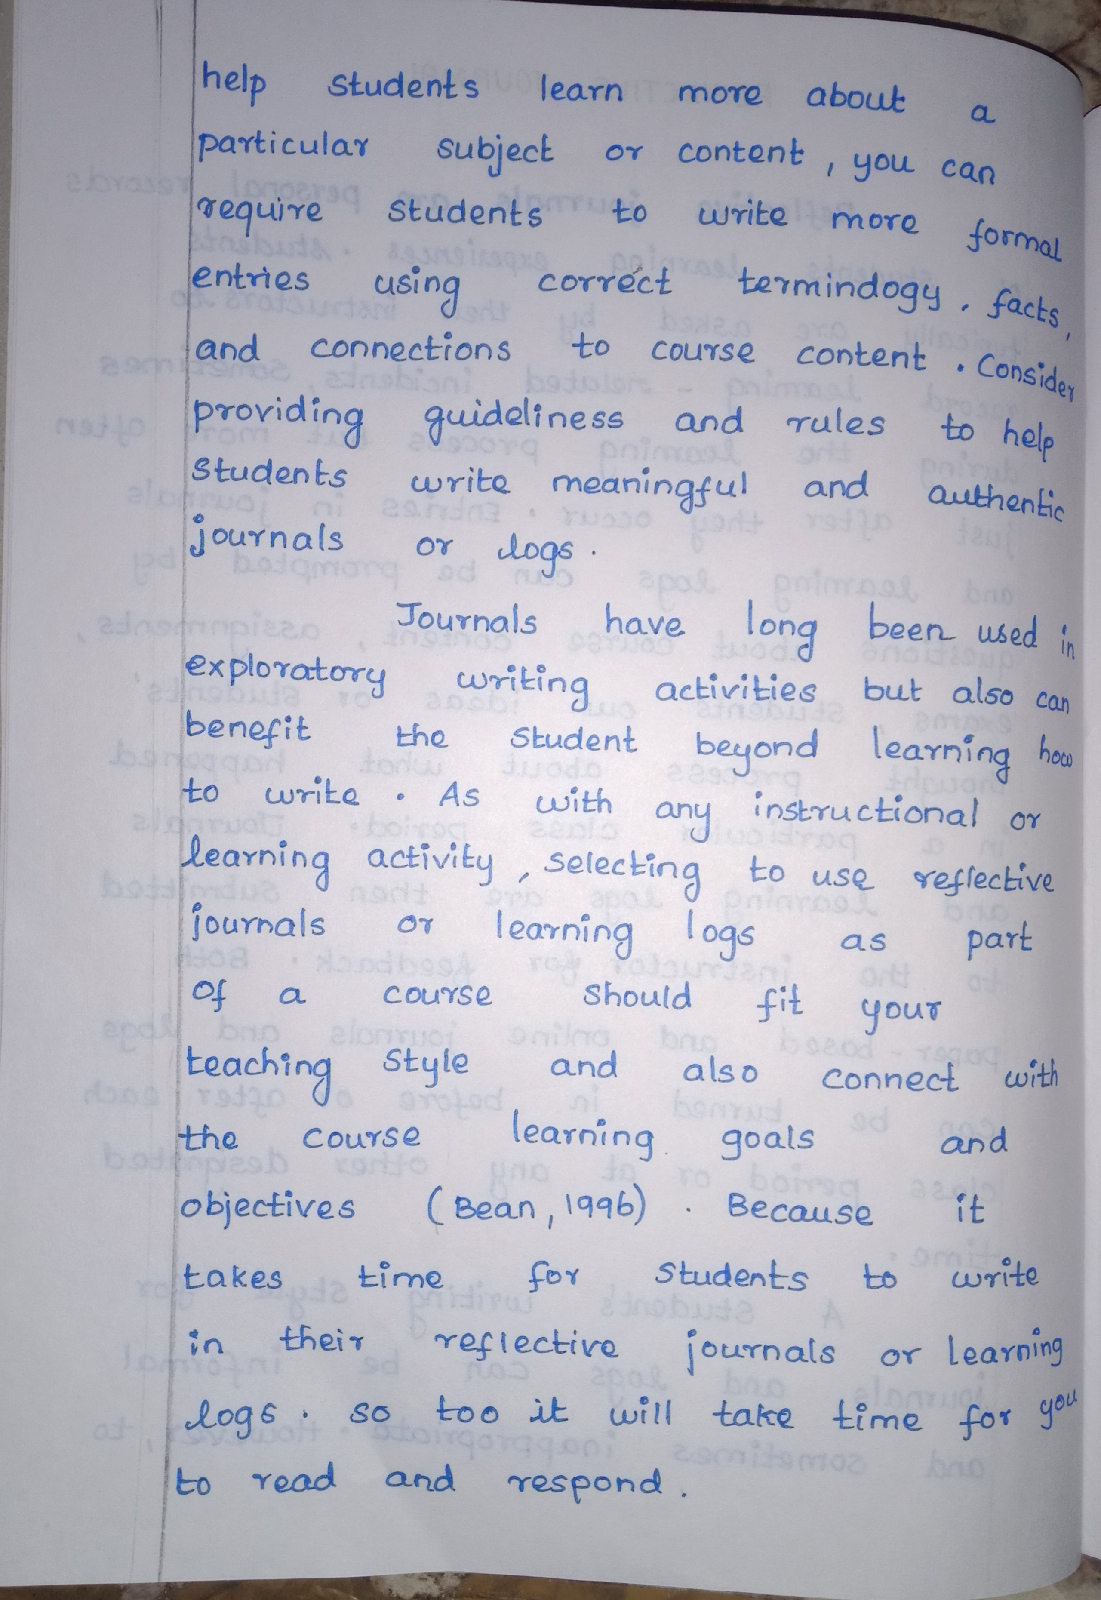 help students learn more about a
particular subject or content , you can
require students to write more formal
entries using correct termindogy . facts,
and connections to course content . Consider
providing guideliness and rules to help
students write meaningful and authentic
journals or logs .
Journals have long been used in
exploratory writing activities but also can
benefit the student beyond learning how
to write . As with any instructional or
learning activity , selecting to use reflective
journals or learning logs as part
of a course should fit your
teaching style and also connect with
the course learning goals and
objectives (Bean, 1996) . Because it
takes time for students to write
in their reflective journals or learning
logs . so too it will take time for you
to read and respond .